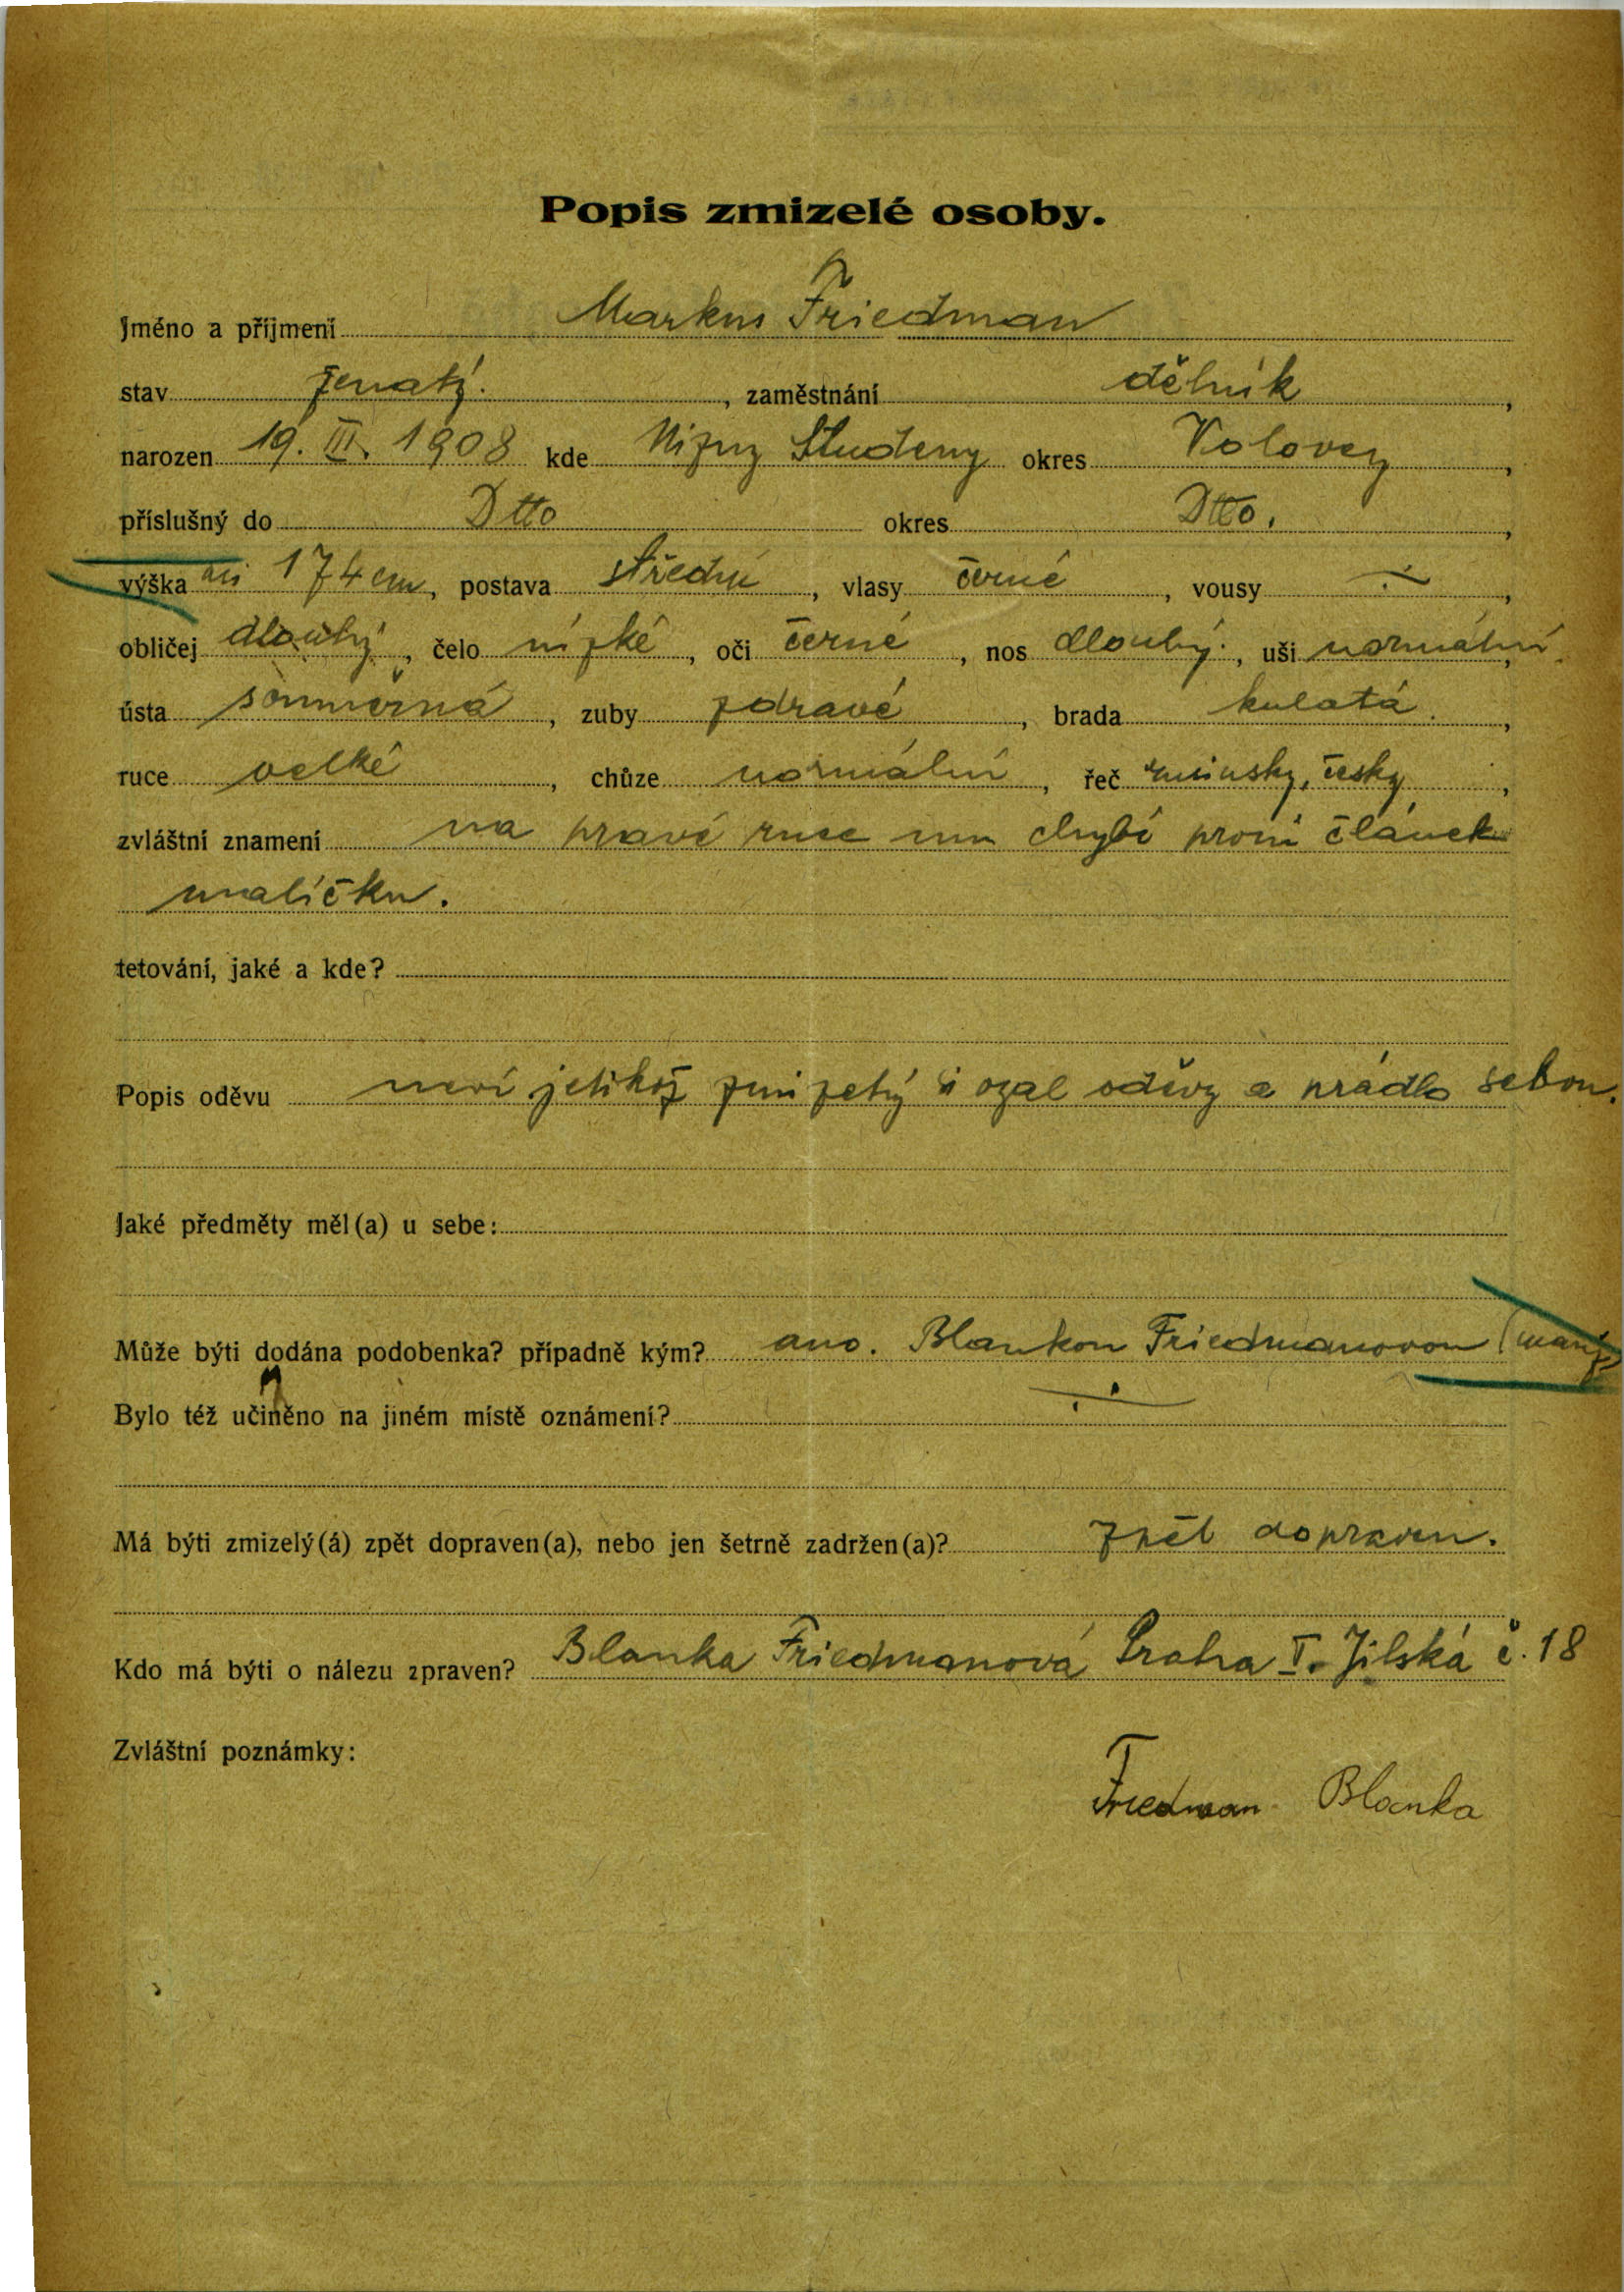 Popis zmizelé osoby.
Jméno a příjmení Markus Friedman
stav ženatý. , zaměstnání dělník ,
narozen 19. III. 1908 kde Nižny Studeny okres Volovey ,
příslušný do Dtto okres Dtto. ,
výška asi 174 cm , postava střední , vlasy černé , vousy ÷ ,
obličej dlouhý , čelo nízké , oči černé , nos dlouhý. , uši normální.
ústa souměrná , zuby zdravé , brada kulatá. ,
ruce velké , chůze normální , řeč rusinsky, česky ,
zvláštní znamení na pravé ruce mu chybí první článek
malíčku.
tetování, jaké a kde?
Popis oděvu neví jelikož zmizelý si vzal oděvy a prádlo sebou.
Jaké předměty měl(a) u sebe:
Může býti dodána podobenka? případně kým? ano. Blankou Friedmanovou (manž
Bylo též učiněno na jiném místě oznámení? ÷
Má býti zmizelý(á) zpět dopraven(a), nebo jen šetrně zadržen(a)? zpět dopraven.
Kdo má býti o nálezu zpraven? Blanka Friedmanová Praha I. Jilská č. 18
Zvláštní poznámky:
Friedman Blanka